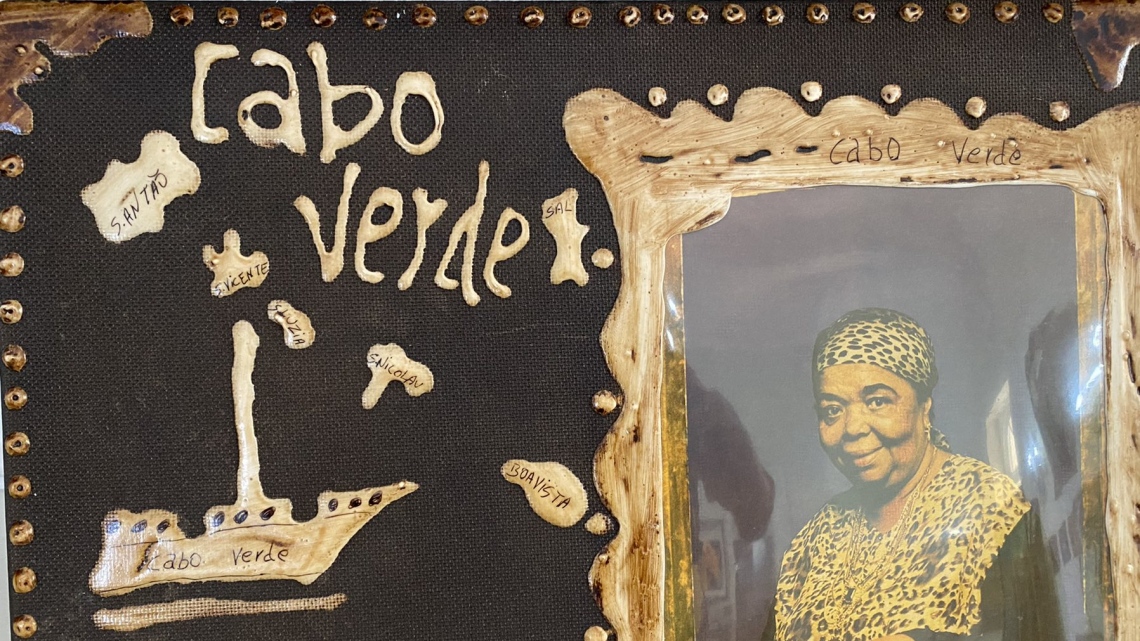 Cabo
Verde
Cabo Verde
S.ANTÃO
SAL
S.VICENTE
S.LUZIA
S.NICOLAU
BOAVISTA
Cabo Verde